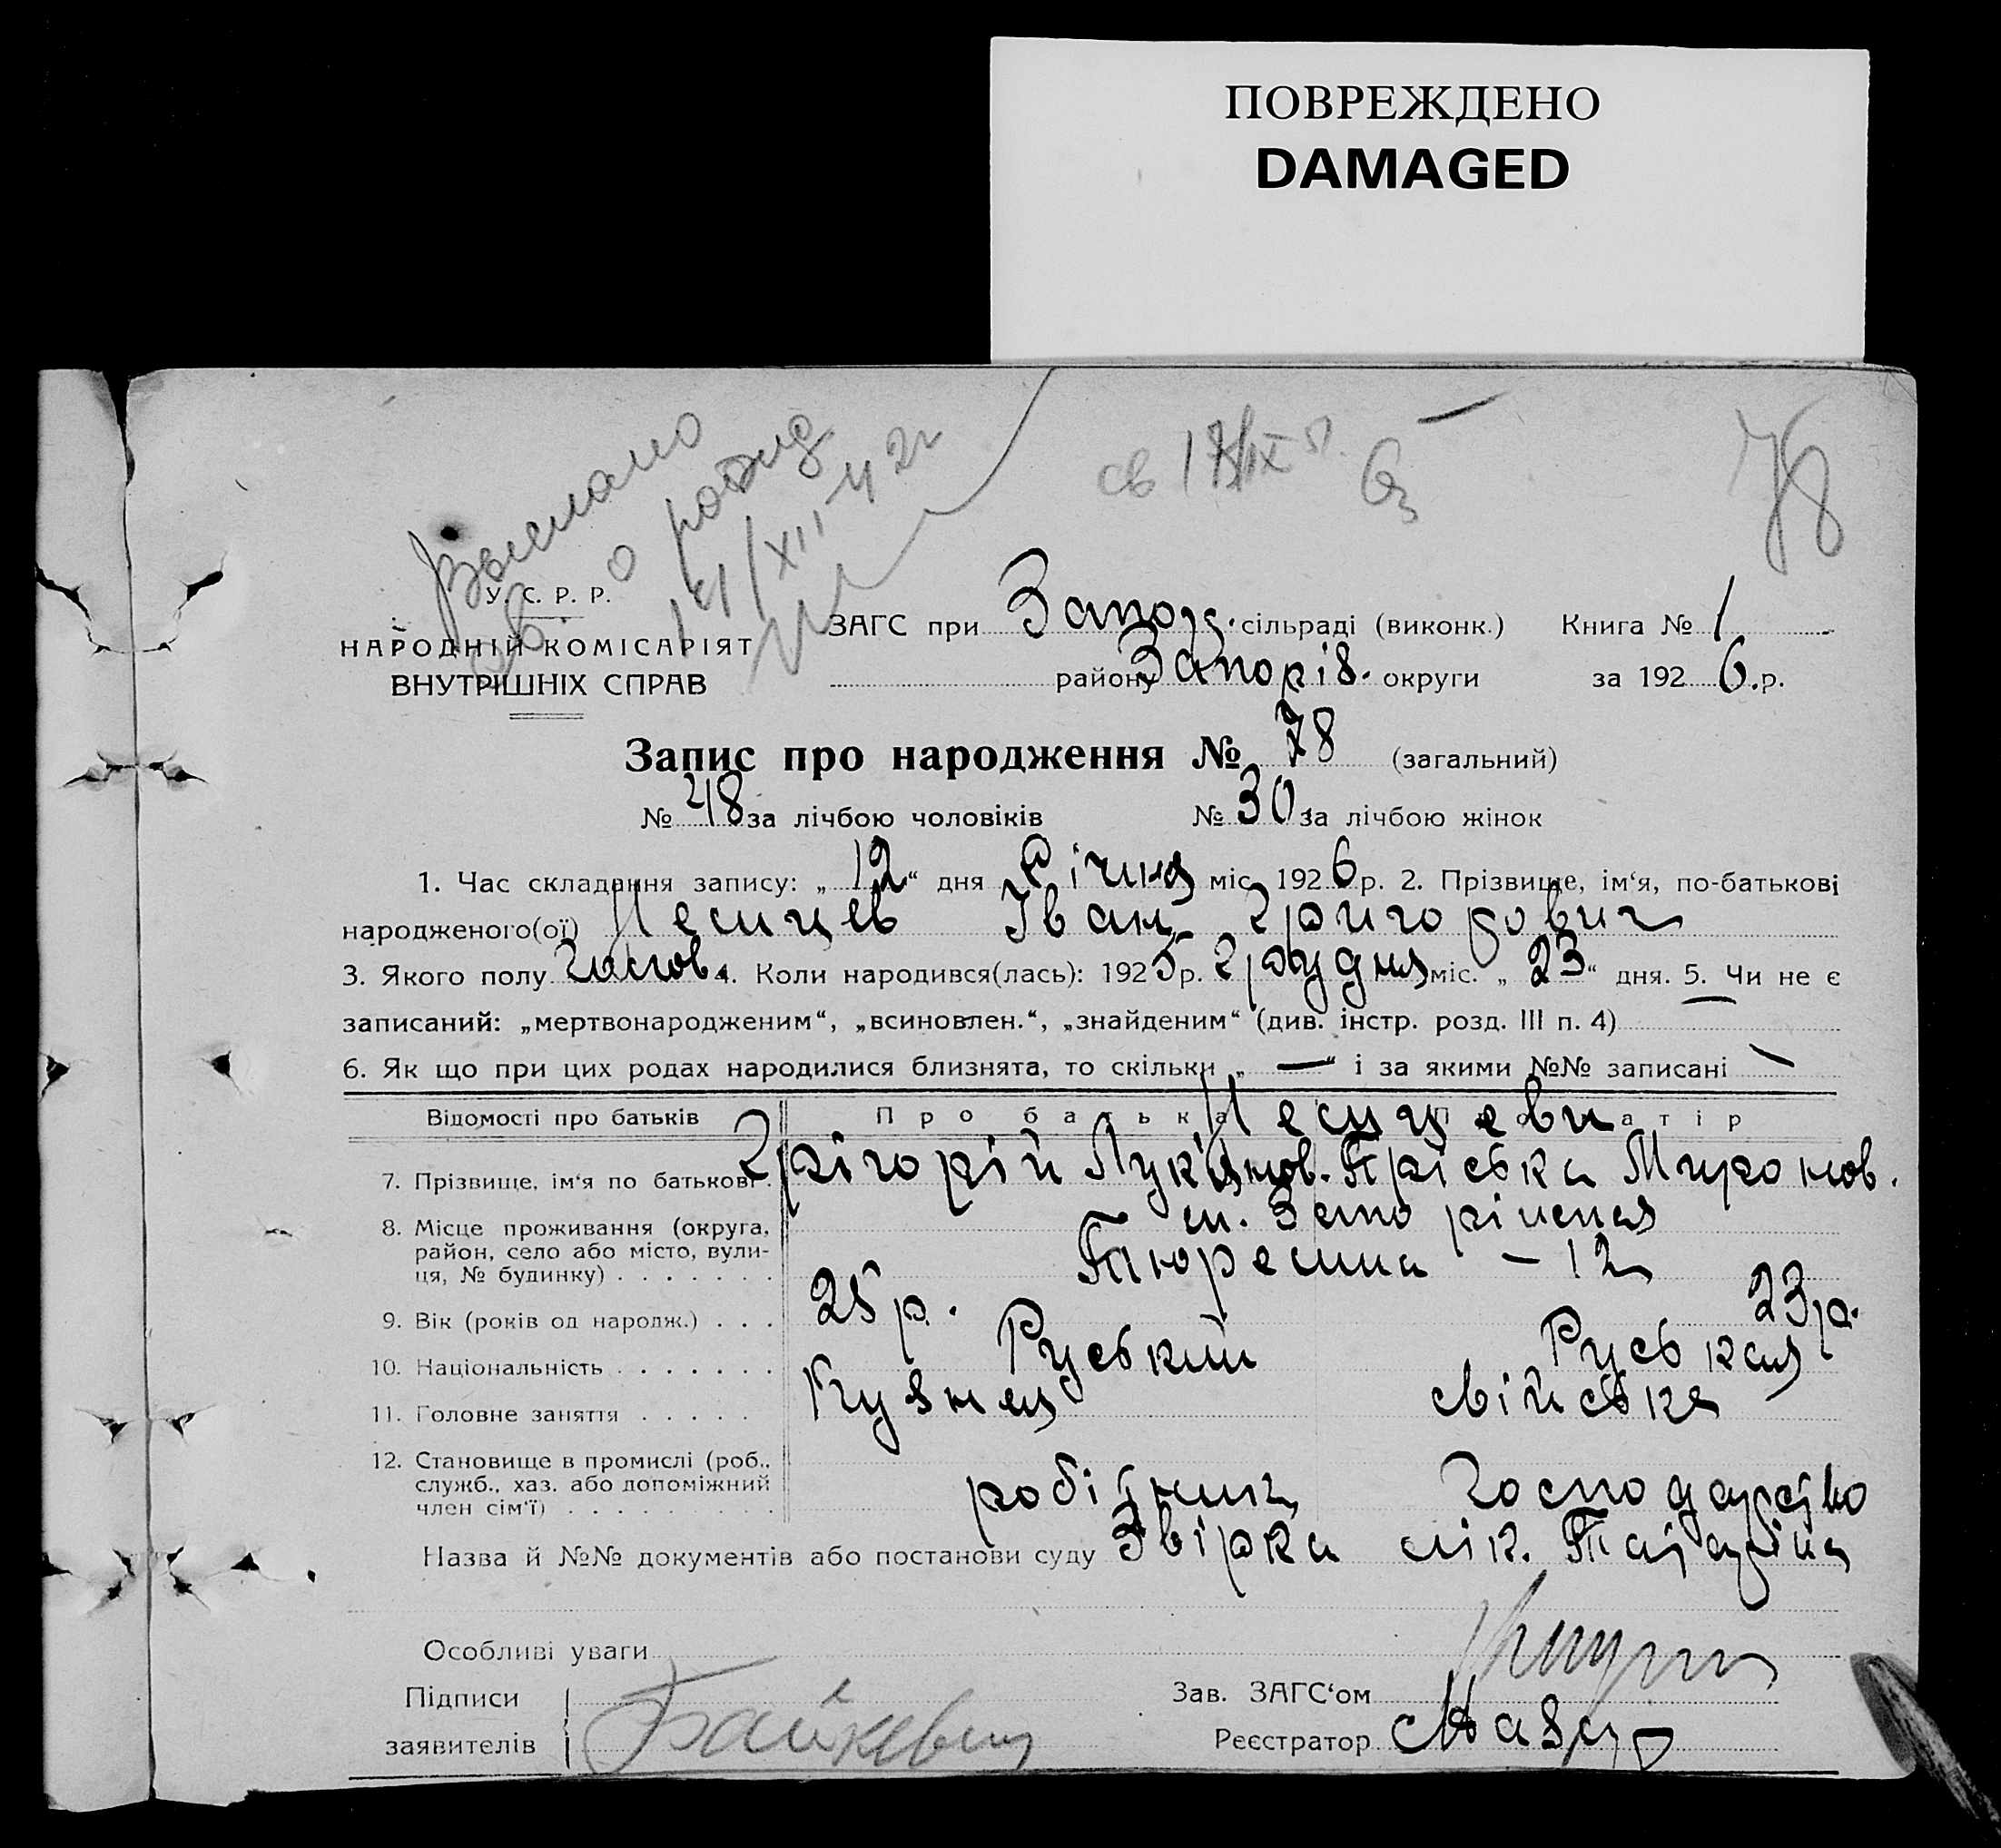 ПОВРЕЖДЕНО
DAMAGED
Выслано
св. о рожд
14/XII 42г
св 1
78
У. С. Р. Р.
НАРОДНІЙ КОМІСАРІЯТ
ВНУТРІШНІХ СПРАВ
ЗАГС при Запор. сільраді (виконк.) Книга № 1
району Запоріз. округи за 1926.р.
Запис про народження № 78 (загальний)
№ 48 за лічбою чоловіків № 30 за лічбою жінок
1. Час складання запису: „12“ дня Січня міс. 1926р. 2. Прізвище, ім‘я, по-батькові
народженого(ої) Іван Григорович
3. Якого полу чолов. 4. Коли народився(лась): 1925р. грудня міс. „23“ дня. 5. Чи не є
записаний: „мертвонародженим“, „всиновлен.“, „знайденим“ (див. інстр. розд. III п. 4) —
6. Як що при цих родах народилися близнята, то скільки „—“ і за якими №№ записані —
Відомості про батьків Про батька Про матір
7. Прізвище, ім‘я по батькові . Грігорій Лукянов. Пріська Миронов.
8. Місце проживання (округа, район, село або місто, вулиця, № будинку) . . . . . . . м. Запоріжжя
Тюремна – 12
9. Вік (років од народж.) . . . 25 р. 23 р.
10. Національність . . . . . . . Руський Руська
11. Головне заняття . . . . . Кузня свійське
12. Становище в промислі (роб., служб., хаз. або допоміжний член сім‘ї) . . . . . . . . . робітник господарство
Назва й №№ документів або постанови суду Звірка лік.
Особливі уваги
Підписи заявителів
Зав. ЗАГС‘ом
Реєстратор